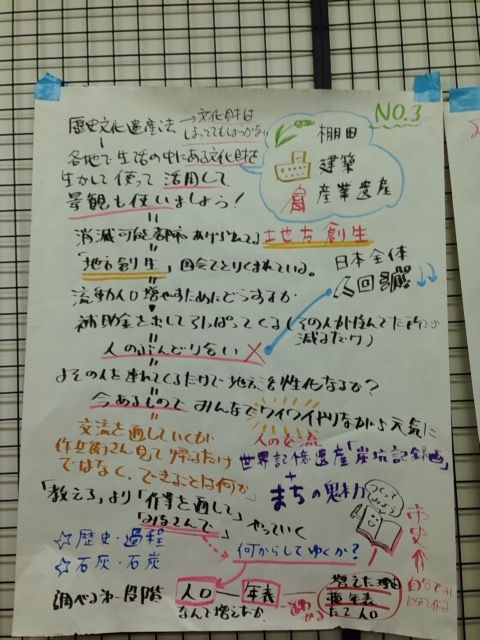 NO.3
歴史文化遺産法 → 文化財は
ほっててもしょうがない
各地で生活の中にある文化財を
生かして使って活用して
景観も使いましょう!
棚田
建築
産業遺産
消滅可能都市あげられて
地方創生
「地方創生」国会でとりくまれている。
日本全体
流動人口増やすためにどうするか
補助金を出してひっぱってくる(その人が住んでた所は
減るだけ)
人のぶんどり合い ×
よその人を連れてくるだけで地元を性化なるか?
今あるもので みんなでワイワイやりながら元気に
交流を通していくが
作兵衛さん見て帰るだけ
ではなく、できることは何か
人の交流
世界記憶遺産「炭坑記録画」
+
まちの魅力
「教える」より「作業を通して」
やっていく
☆ 歴史・過程
☆ 石灰・石炭
何からしてゆくか?
市史
調べる第一段階
人口
年表
なんで増えたか
増えた理由